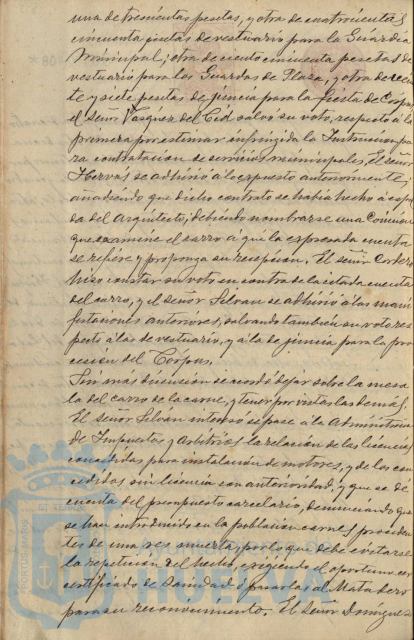 una de trescientas pesetas, y otra de cuatrocientas
cincuenta pesetas de vestuario para la Guardia
Municipal; otra de ciento cincuenta pesetas de
vestuario para los Guardas de Plaza, y otra de
te y siete pesetas de juncia para la fiesta de Corpus
el Señor Vasquez del Cid salvó su voto, respecto á la
primera por estimar infringida la Instruccion pa
ra contratacion de servicios municipales. El señor
Hervás se adhirió á lo expuesto anteriormente,
añadiendo que dicho contrato se habia hecho á espal
da del Arquitecto; debiendo nombrarse una Comision
que examine el carro á que la expresada cuenta
se refiere y proponga su recepcion. El señor Corder
hizo constar su voto en contra de la citada cuenta
del carro, y el señor Selvan se adhirió á las mani
festaciones anteriores, salvando tambien su voto res
pecto á las de vestuario, y á la de juncia para la pro
cesion del Corpus.
Sin más discusion se acordó dejar sobre la mesa
la del carro de la carne, y tener por vistas las demás.
El señor Selván interesó se pase á la Administracion
de Impuestos y Arbitrios la relacion de las licencias
concedidas para instalacion de motores, y de los con
cedidos sin licencia con anterioridad, y que se dé
cuenta del presupuesto carcelario, denunciando que
se han introducido en la poblacion carnes proceden
tes de una res muerta, por lo que debe evitarse
la repeticion del hecho, exigiendo el oportuno
certificado de Sanidad ó pasarlas al Matadero
para su reconocimiento. El Señor Dominguez
PORTUS MARIS
HUELVA